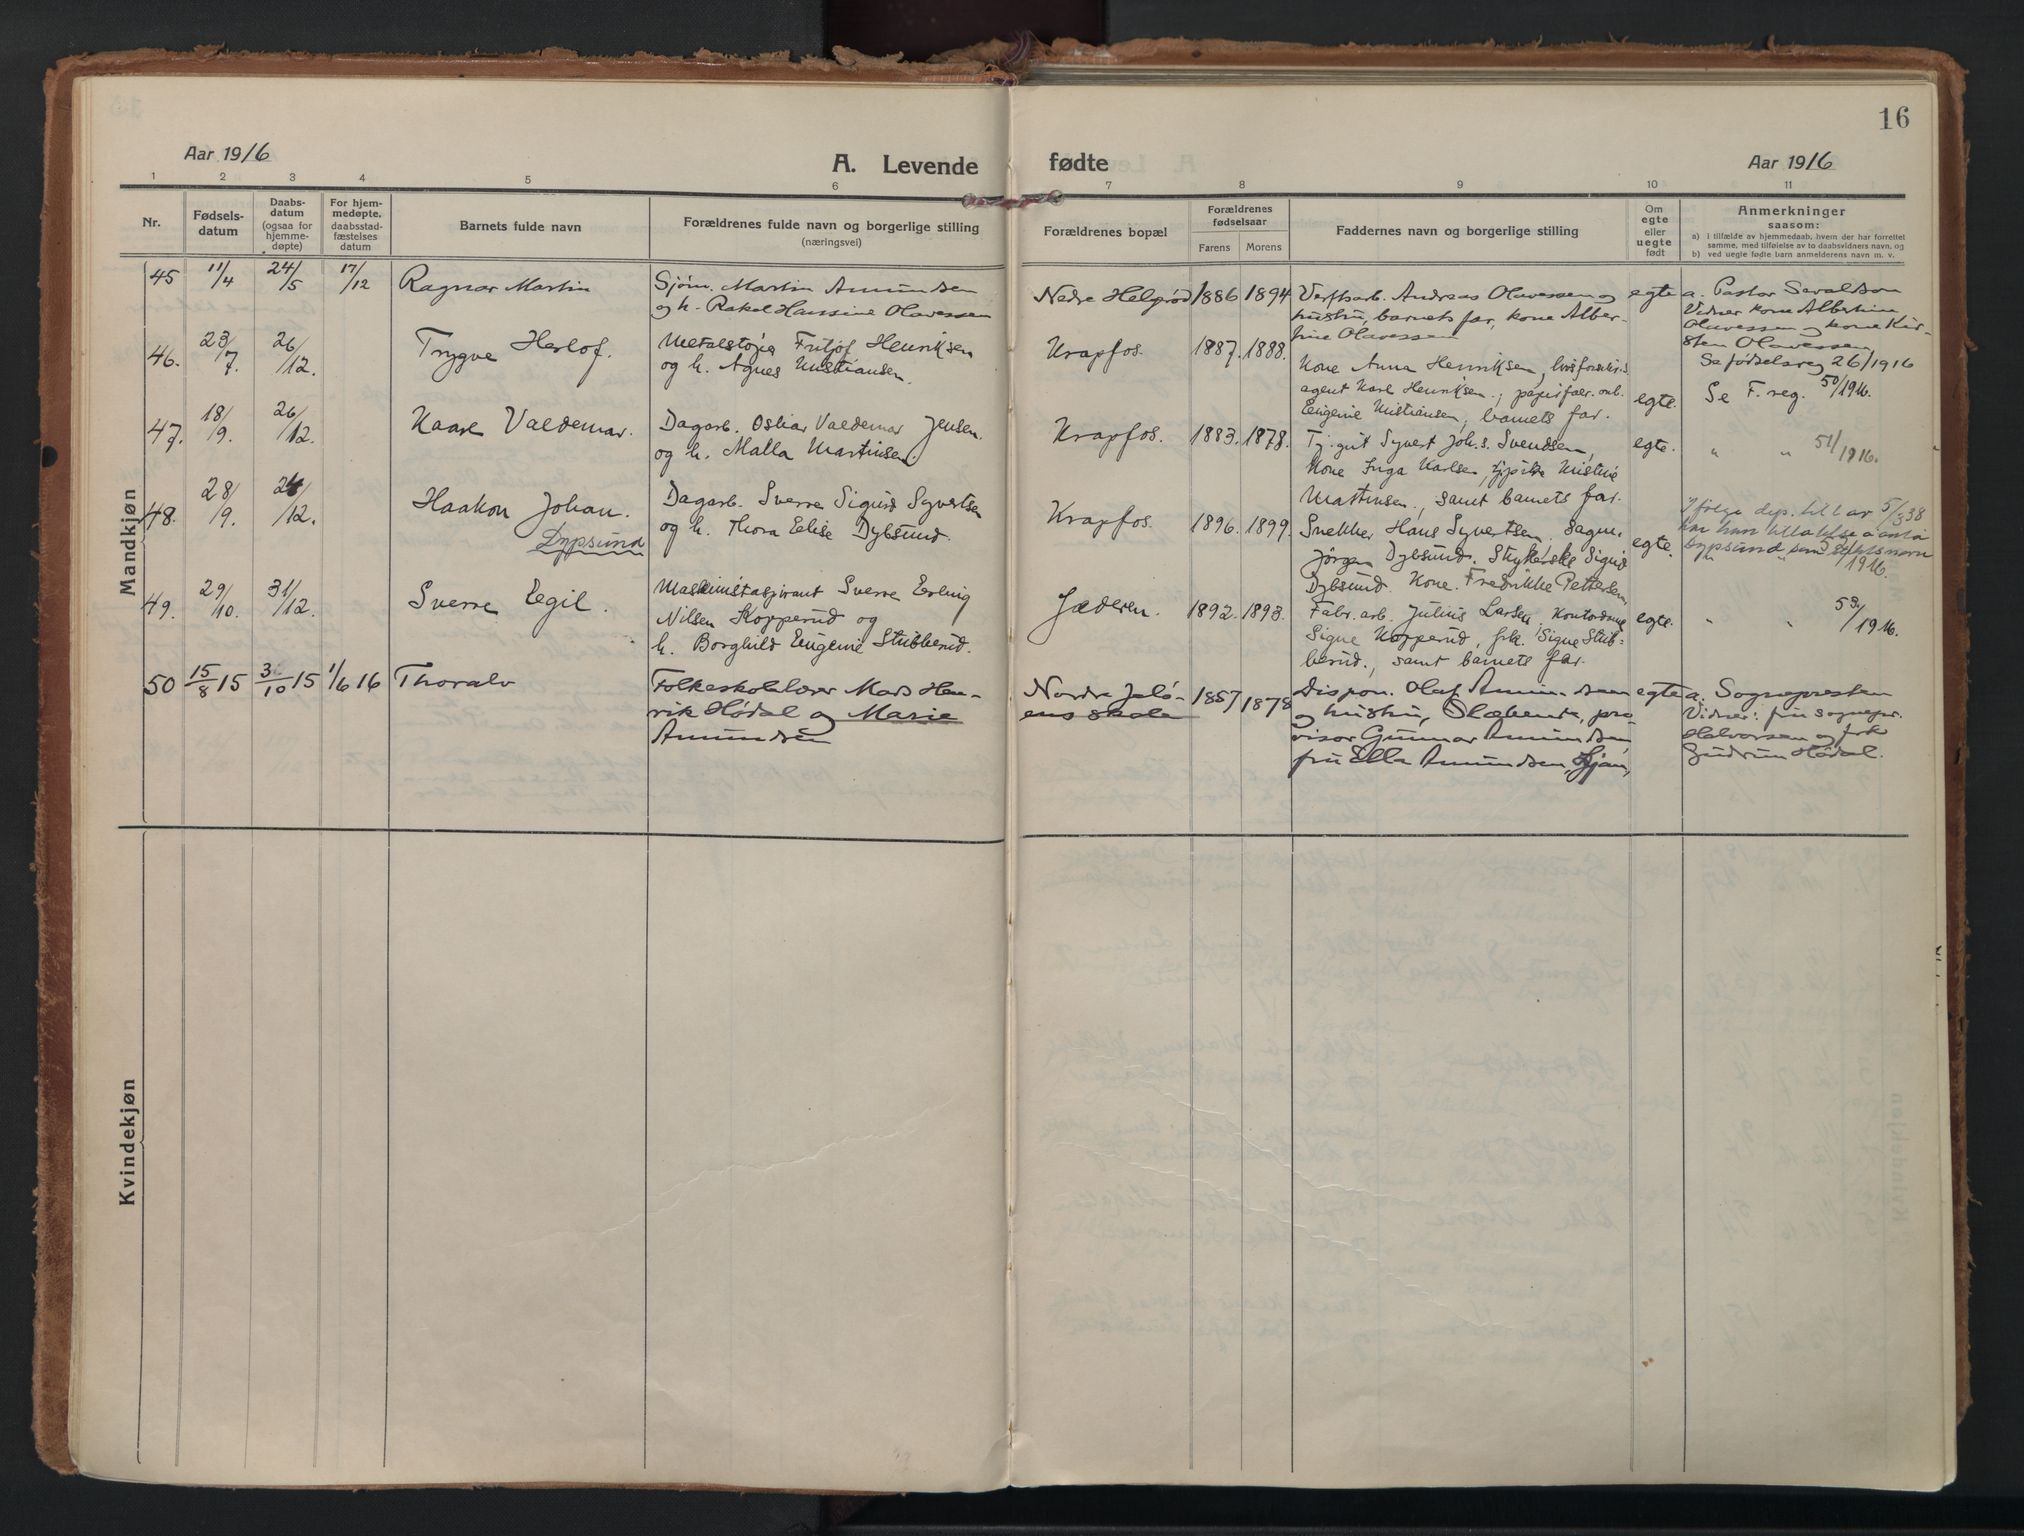 16
Aar 1916
A. Levende fødte
Aar 1916
1 2 3 4 5 6 7 8 9 10 11
Nr.
Fødsels-
datum
Daabs-
datum
(ogsaa for
hjemme-
døpte)
For hjem-
medøpte,
daabsstad-
fæstelses
datum
Barnets fulde navn
Forældrenes fulde navn og borgerlige stilling
(næringsvei)
Forældrenes bopæl
Forældrenes
fødselsaar
Farens Morens
Faddernes navn og borgerlige stilling
Om
egte
eller
uegte
født
Anmerkninger
saasom:
a) i tilfælde av hjemmedaab, hvem der har forrettet
samme, med tilføielse av to daabsvidners navn, og
b) ved uegte fødte barn anmelderens navn m. v.
Mandkjøn
45 11/4 24/5 17/12 Ragnar Martin
Sjøm. Martin Amundsen
og h. Rakel Hansine Olavessen
Nedre Helgerød 1886 1894
Verftsarb. Andreas Olavessen og
hustru, barnets far, kone Alber-
tine Olavessen
egte
a. Pastor Sevaldson
Vidner kone Albertine
Olavessen og kone Kir-
sten Olavessen
Se fødselsreg 26/1916
46. 23/7. 26/12. Trygve Herlof.
Metalstøper Fritjof Henriksen
og h. Agnes Kristiansen.
Krapfos. 1887. 1888.
Kone Anna Henriksen, livsforsikr.s
agent Karl Henriksen, papirfabr. arb.
Eugenie Kristiansen, barnets far.
egte.
Se F. reg. 50/1916.
47. 18/9. 26/12. Kaare Valdemar.
Dagarb. Oskar Valdemar Jensen.
og h. Malla Martinsen.
Krapfos. 1883. 1878.
Tj.gut Syvert Joh.s. Svendsen,
Kone Inga Karlsen, Kristine
Martinsen, samt barnets far.
egte.
" " 51/1916.
48. 28/9. 26/12. Haakon Johan.
Dypsund
Dagarb. Sverre Sigurd Syvertsen
og h. Thora Elise Dybsund.
Krapfos. 1896. 1899.
Snekker Hans Syvertsen. Sagm.
Jörgen Dybsund. Sigrid
Dybsund. Kone Fredrikke Pettersen,
egte.
Ifølge dep. till. av 5/3 38
har han tillatelse å anta
Dypsund som slektsnavn
" " /1916.
49. 29/10. 31/12. Sverre Egil.
Maskinistaspirant Sverre Erling
Nilsen Kopperud og
h. Borghild Eugenie Stubberud.
Jæderen. 1892. 1893.
Fabr. arb. Julius Larsen, Kontordame
Signe Kopperud, frk. Signe Stub-
berud., samt barnets far.
egte.
" " 53/1916.
50 15/8 15 3/10 15 1/6 16 Thoralv
Folkeskolelærer Mads Hen-
rik Hódal og Marie
Amundsen
Nordre Jelö-
ens skole 1857 1878
Dispon. Olaf Amundsen
og hustru, pro-
visor Gunnar Amundsen,
fru Ella Amundsen, Ljan,
egte
a. Sognepresten
Vidner: fru sognepr.
Halvorsen og frk
Gudrun Hódal.
Kvindekjøn